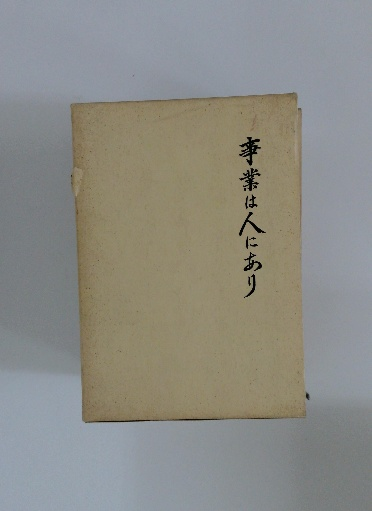 事業は人にあり